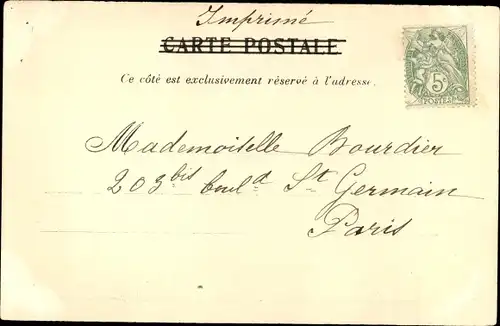 Imprimé
CARTE POSTALE
Ce côté est exclusivement réservé à l'adresse.
5c
POSTES
Mademoiselle Bourdier
203 bis boul^d St Germain
Paris